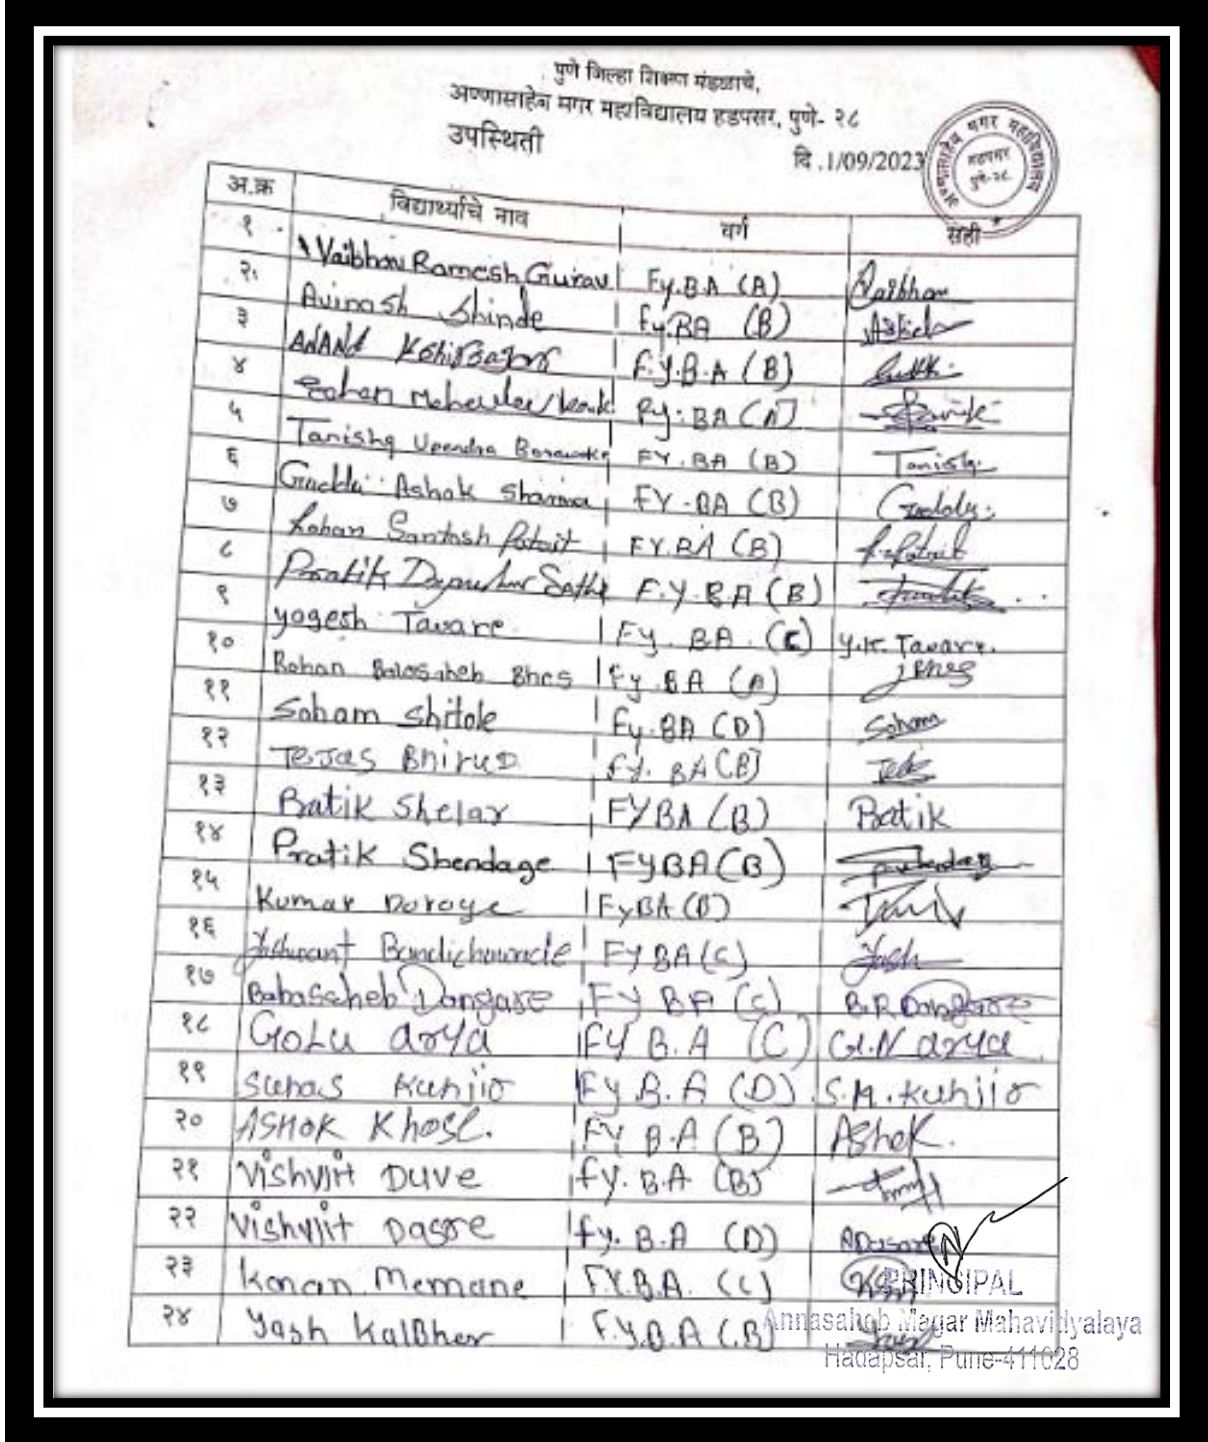 पुणे जिल्हा शिक्षण मंडळाचे,
अण्णासाहेब मगर महाविद्यालय हडपसर, पुणे- २८
उपस्थिती
दि .1/09/2023
अण्णासाहेब मगर महाविद्यालय
हडपसर
पुणे-२८
अ.क्र विद्यार्थ्याचे नाव वर्ग सही
१ Vaibhav Ramesh Gurav Fy.BA (A) Vaibhav
२ Avinash Shinde Fy.BA (B)
३ ANAND Kshirsagar F.Y.B.A (B)
४ Fy.BA (A)
५ Tanishq Upendra FY.BA (B) Tanishq
६ Guddu Ashok Sharma FY-BA (B) Guddu
७ Rohan Santosh FY.BA (B)
८ Pratik Sathe F.Y.B.A (B)
९ yogesh Taware Fy. BA. (C) Y.K. Taware.
१० Rohan Balasaheb Fy.BA (A)
११ Soham Shitole Fy.BA (D) Soham
१२ Tejas Bhirud Fy. BA (B)
१३ Ratik Shelar FYBA (B) Ratik
१४ Pratik Shendage FYBA (B)
१५ Kumar FyBA (B)
१६ Yashwant FYBA (C) Yash
१७ Babasaheb Dongare FY BA (C) B.R Dongare
१८ GoLu arya FY B.A (C) G.N arya
१९ Suhas Kunjir Fy B.A (D) S.M. Kunjir
२० ASHOK Khose. FY B.A (B) Ashok.
२१ Vishvjit Duve fy. B.A (B)
२२ Vishvjit Dasre fy. B.A (D)
२३ Karan Memane F.Y.B.A. (C)
२४ Yash Kalbhor F.Y.B.A (B)
PRINCIPAL
Annasaheb Magar Mahavidyalaya
Hadapsar, Pune-411028